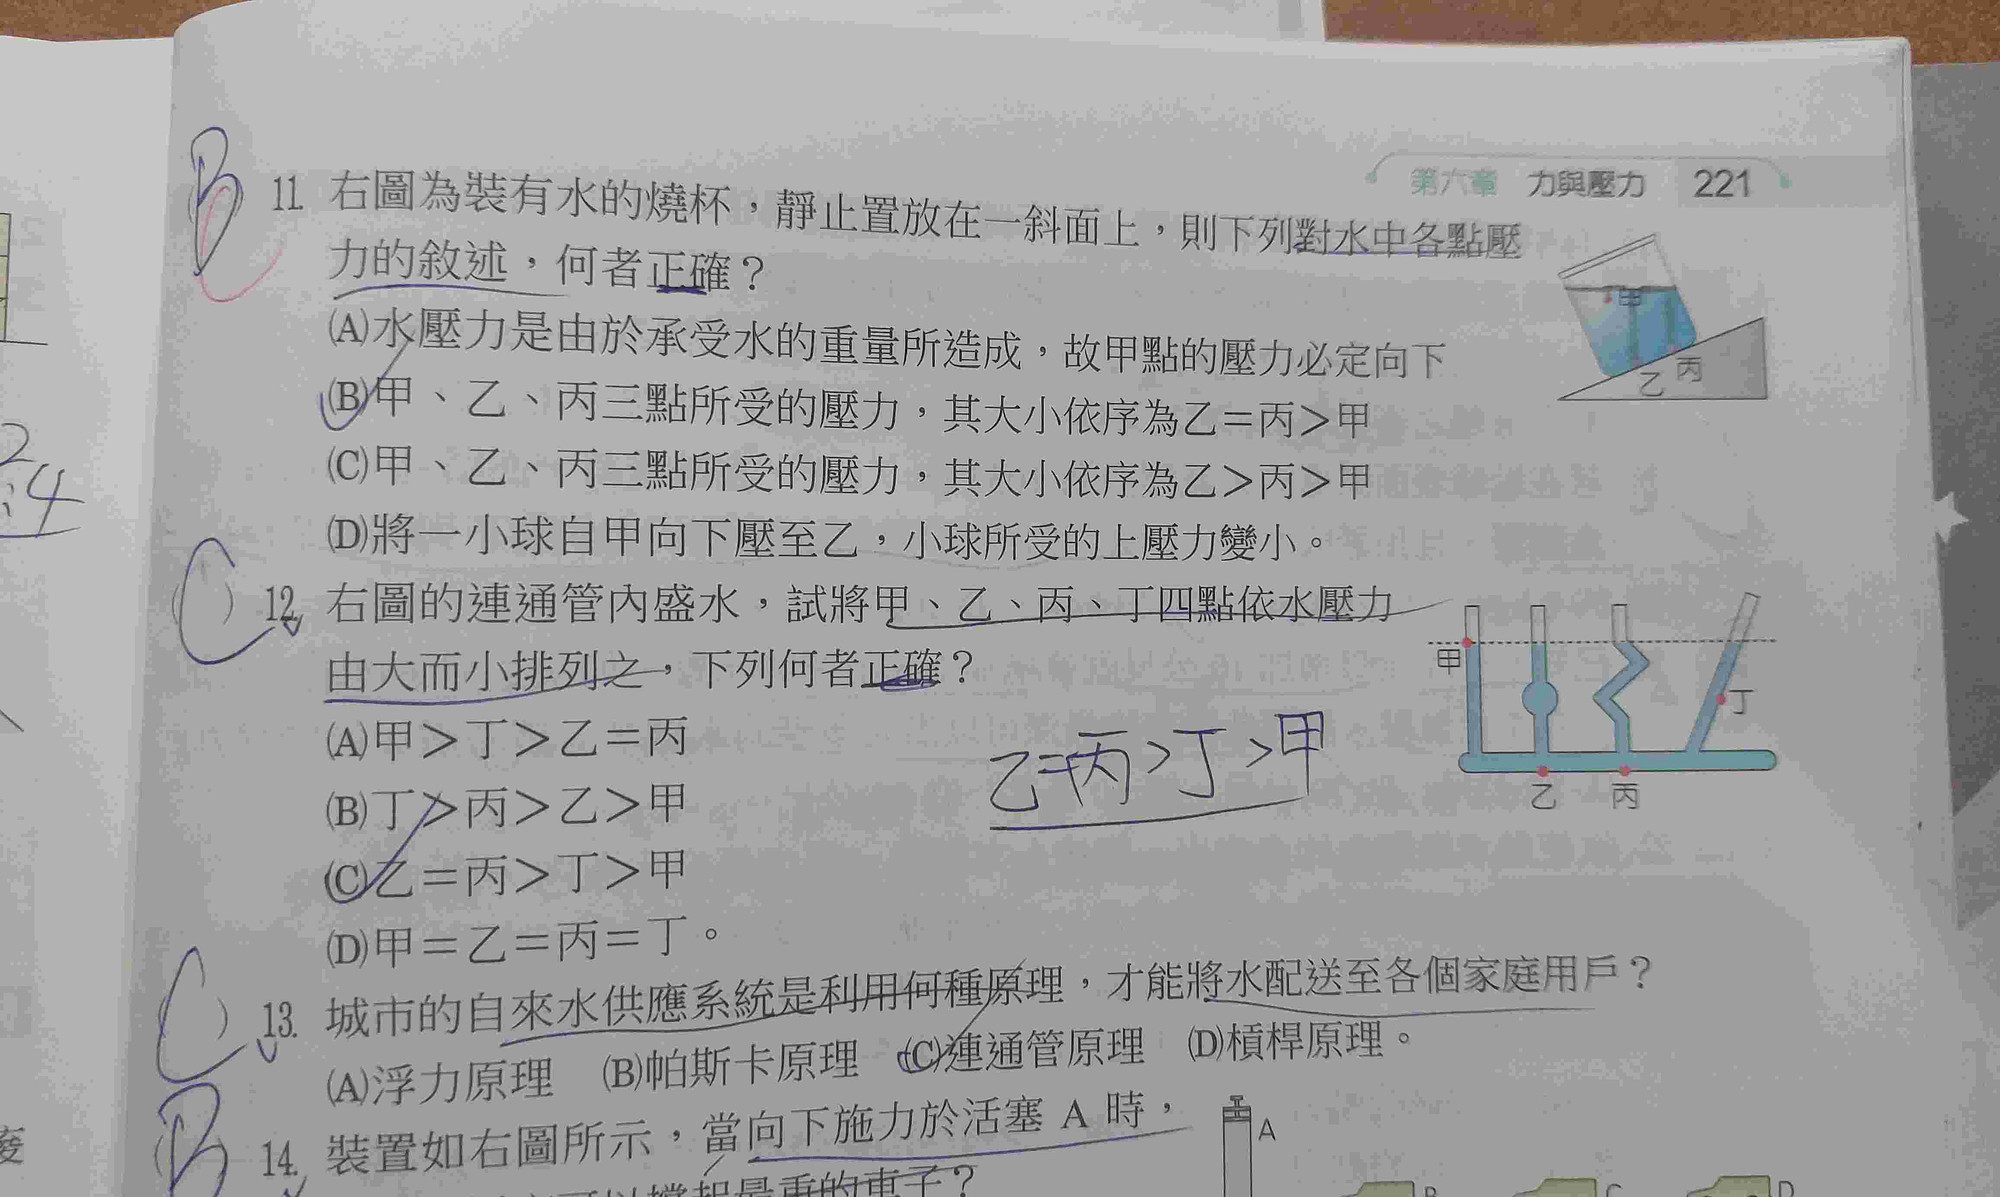 第六章 力與壓力 221
B 11. 右圖為裝有水的燒杯，靜止置放在一斜面上，則下列對水中各點壓
力的敘述，何者正確？
甲
乙 丙
(A)水壓力是由於承受水的重量所造成，故甲點的壓力必定向下
(B)甲、乙、丙三點所受的壓力，其大小依序為乙＝丙＞甲
(C)甲、乙、丙三點所受的壓力，其大小依序為乙＞丙＞甲
(D)將一小球自甲向下壓至乙，小球所受的上壓力變小。
C 12. 右圖的連通管內盛水，試將甲、乙、丙、丁四點依水壓力
由大而小排列之，下列何者正確？
甲
丁
乙 丙
(A)甲＞丁＞乙＝丙
乙=丙>丁>甲
(B)丁＞丙＞乙＞甲
(C)乙＝丙＞丁＞甲
(D)甲＝乙＝丙＝丁。
C 13. 城市的自來水供應系統是利用何種原理，才能將水配送至各個家庭用戶？
(A)浮力原理 (B)帕斯卡原理 (C)連通管原理 (D)槓桿原理。
B 14. 裝置如右圖所示，當向下施力於活塞 A 時，
A
B C D